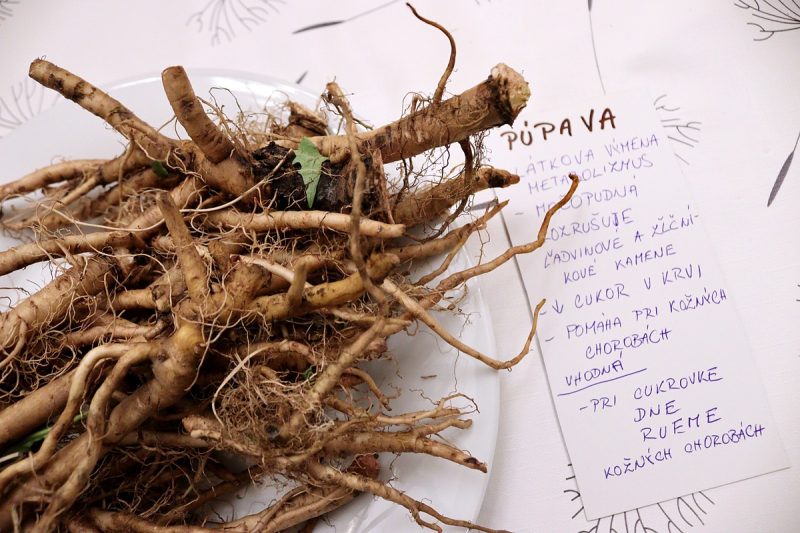 PÚPAVA
LÁTKOVA VÝMENA
METABOLIZMUS
- MOČOPUDNÁ
- ROZRUŠUJE
ĽADVINOVÉ A ŽLČNÍ-
KOVÉ KAMENE
↓ CUKOR V KRVI
- POMÁHA PRI KOŽNÝCH
CHOROBÁCH
VHODNÁ
- PRI CUKROVKE
DNE
RUEME
KOŽNÝCH CHOROBÁCH